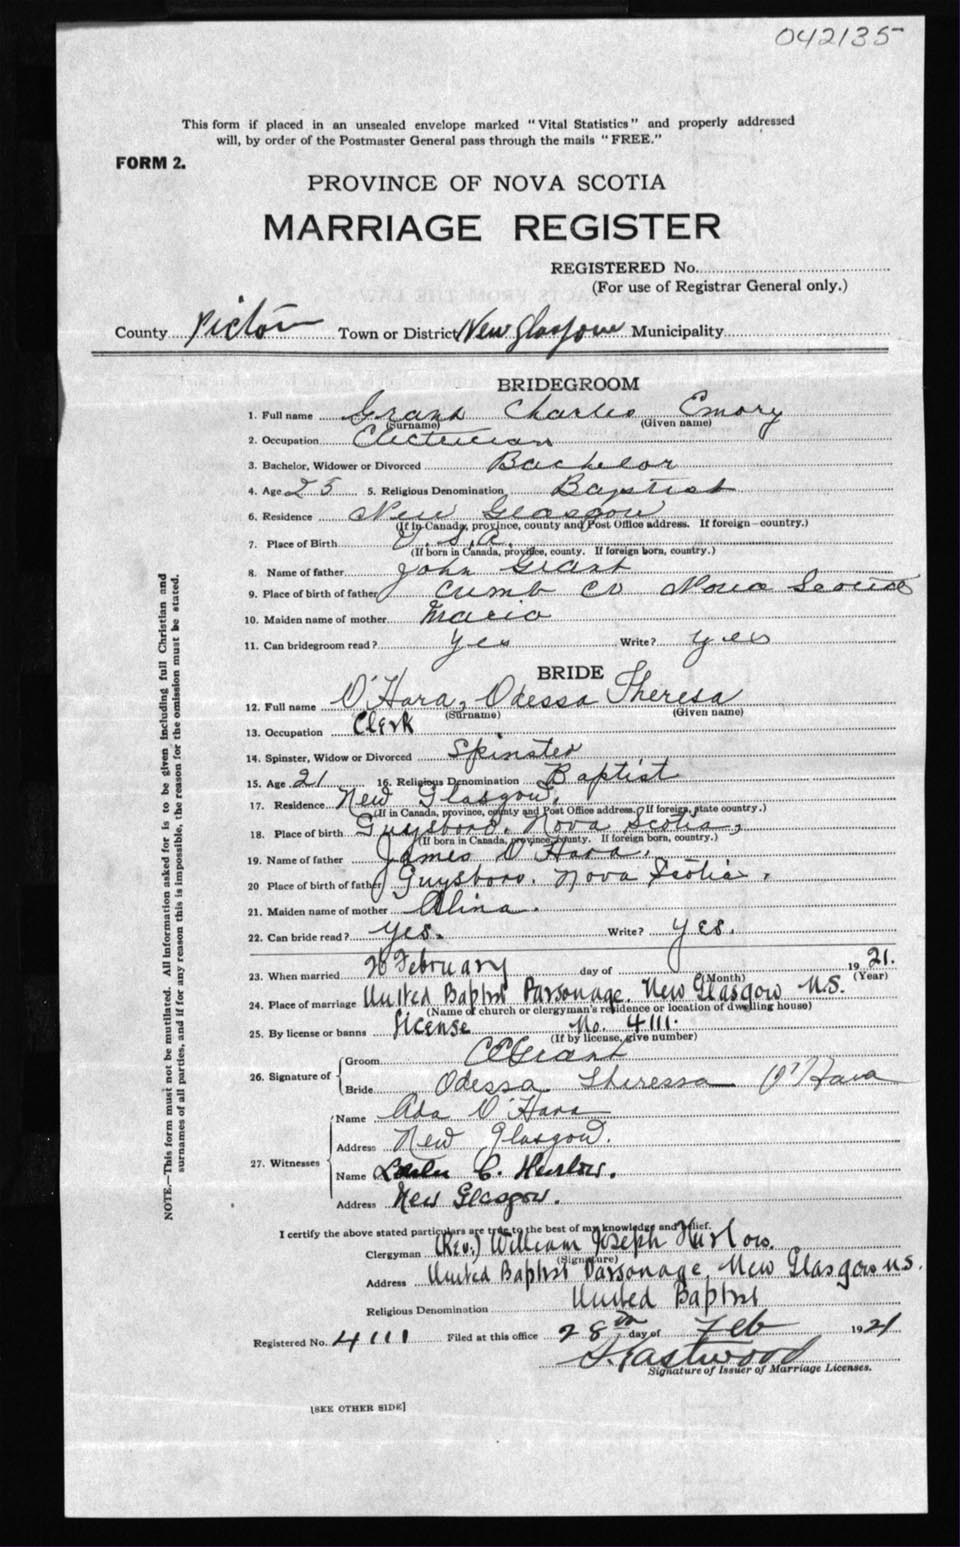 042135
This form if placed in an unsealed envelope marked "Vital Statistics" and properly addressed
will, by order of the Postmaster General pass through the mails "FREE."
FORM 2.
PROVINCE OF NOVA SCOTIA
MARRIAGE REGISTER
REGISTERED No.
(For use of Registrar General only.)
County Pictou Town or District New Glasgow Municipality
BRIDEGROOM
1. Full name Grant Charles Emory
(Surname) (Given name)
2. Occupation Electrician
3. Bachelor, Widower or Divorced Bachelor
4. Age 25 5. Religious Denomination Baptist
6. Residence New Glasgow
(If in Canada, province, county and Post Office address. If foreign—country.)
7. Place of Birth U.S.A.
(If born in Canada, province, county. If foreign born, country.)
8. Name of father John Grant
9. Place of birth of father Cumb Co Nova Scotia
10. Maiden name of mother
11. Can bridegroom read? Yes Write? yes
BRIDE
12. Full name O'Hara, Odessa Theresa
(Surname) (Given name)
13. Occupation Clerk
14. Spinster, Widow or Divorced Spinster
15. Age 21 16. Religious Denomination Baptist
17. Residence New Glasgow,
(If in Canada, province, county and Post Office address. If foreign, state country.)
18. Place of birth Guysboro, Nova Scotia,
(If born in Canada, province, county. If foreign born, country.)
19. Name of father James O'Hara.
20 Place of birth of father Guysboro. Nova Scotia.
21. Maiden name of mother Alina.
22. Can bride read? Yes. Write? Yes.
23. When married 26 February day of 1921.
(Month) (Year)
24. Place of marriage United Baptist Parsonage. New Glasgow N.S.
(Name of church or clergyman's residence or location of dwelling house)
25. By license or banns License No. 4111.
(If by license, give number)
26. Signature of Groom C E Grant
Bride Odessa Theressa O'Hara
27. Witnesses Name Ada O'Hara
Address New Glasgow.
Name C. Hurlow.
Address New Glasgow.
I certify the above stated particulars are true to the best of my knowledge and belief.
Clergyman (Rev.) William Joseph Hurlow.
(Signature)
Address United Baptist Parsonage New Glasgow N.S.
Religious Denomination United Baptist
Registered No. 4111 Filed at this office 28th day of Feb 1921
Eastwood
Signature of Issuer of Marriage Licenses.
[SEE OTHER SIDE]
NOTE.—This form must not be mutilated. All information asked for is to be given including full Christian and
surnames of all parties, and if for any reason this is impossible, the reason for the omission must be stated.